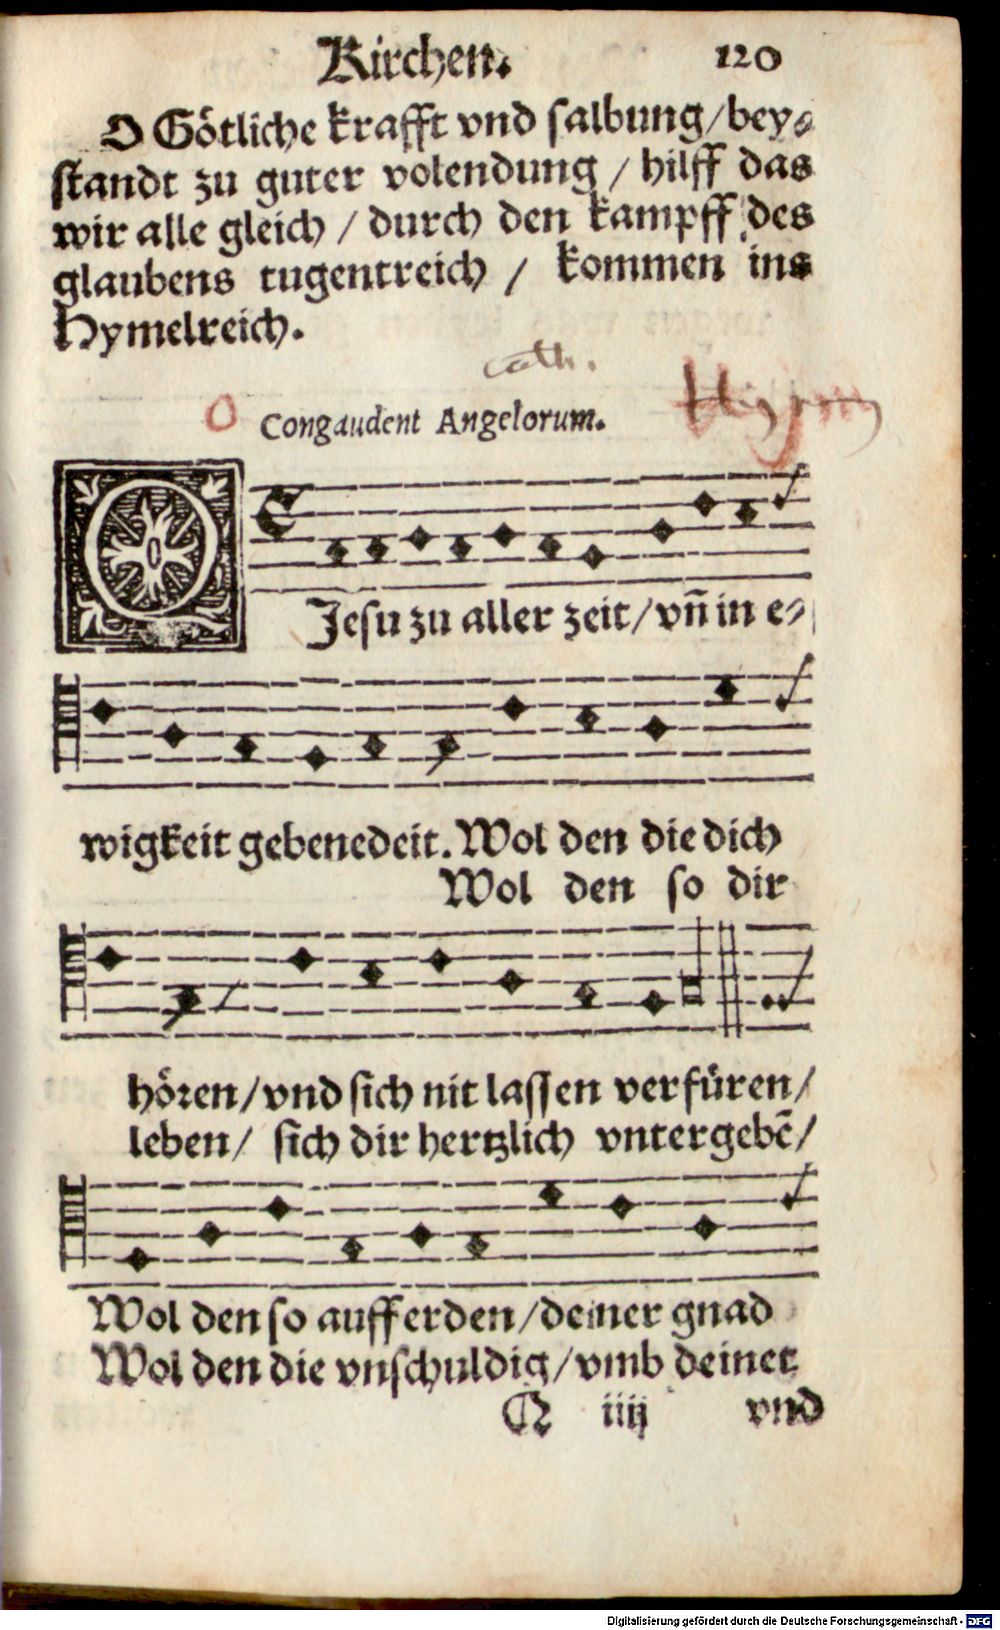 Kirchen. 120
O Götliche krafft vnd salbung/bey⸗
standt zu guter volendung / hilff das
wir alle gleich / durch den kampff des
glaubens tugentreich / kommen ins
Hymelreich.
Cath.
O Congaudent Angelorum.
O
Jesu zu aller zeit/vn̄ in e⸗
wigkeit gebenedeit. Wol den die dich
Wol den so dir
hören/vnd sich nit lassen verfüren/
leben/ sich dir hertzlich vntergebē/
Wol den so auff erden/deiner gnad
Wol den die vnschuldig/vmb deinet
Q iiij vnd
Digitalisierung gefördert durch die Deutsche Forschungsgemeinschaft - DFG